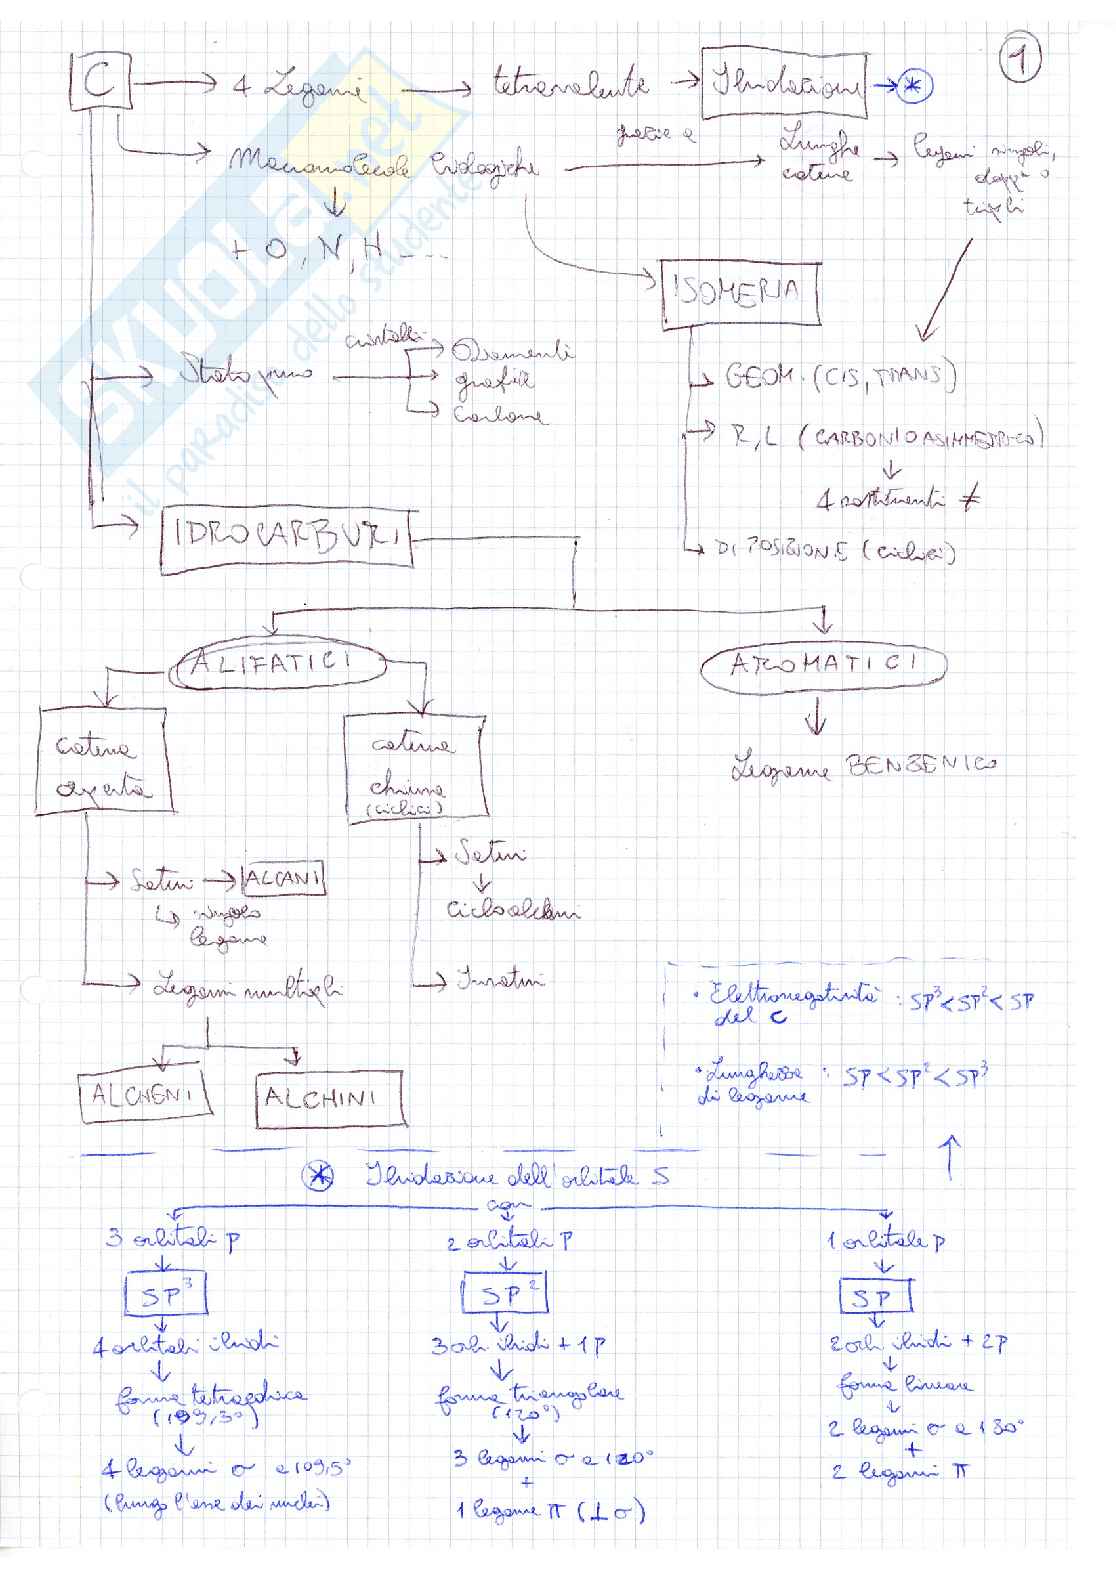 1
C → 4 Legami → tetravalente → Ibridazione → *
Macromolecole biologiche → grazie a → Lunghe catene → legami singoli, doppi o tripli
+ O, N, H ...
ISOMERIA
Stato puro → cristalli
Diamanti
grafite
Carbone
GEOM. (CIS, TRANS)
R, L (CARBONIO ASIMMETRICO)
4 sostituenti ≠
DI POSIZIONE (ciclici)
IDROCARBURI
ALIFATICI
AROMATICI
catena aperta
catena chiusa (ciclici)
Legame BENZENICO
Saturi → ALCANI
singolo legame
Saturi
Cicloalcani
Legami multipli
Insaturi
ALCHENI
ALCHINI
• Elettronegatività del C : SP³ < SP² < SP
• Lunghezza di legame : SP < SP² < SP³
* Ibridazione dell'orbitale S
con
3 orbitali p
2 orbitali p
1 orbitale p
SP³
SP²
SP
4 orbitali ibridi
3 orb ibridi + 1p
2 orb ibridi + 2p
forma tetraedrica (109,3°)
forma triangolare (120°)
forma lineare
4 legami σ a 109,5° (lungo l'asse dei nuclei)
3 legami σ a 120°
+
1 legame π (⊥ σ)
2 legami σ a 180°
+
2 legami π
SKUOLA.net
il paradiso dello studente